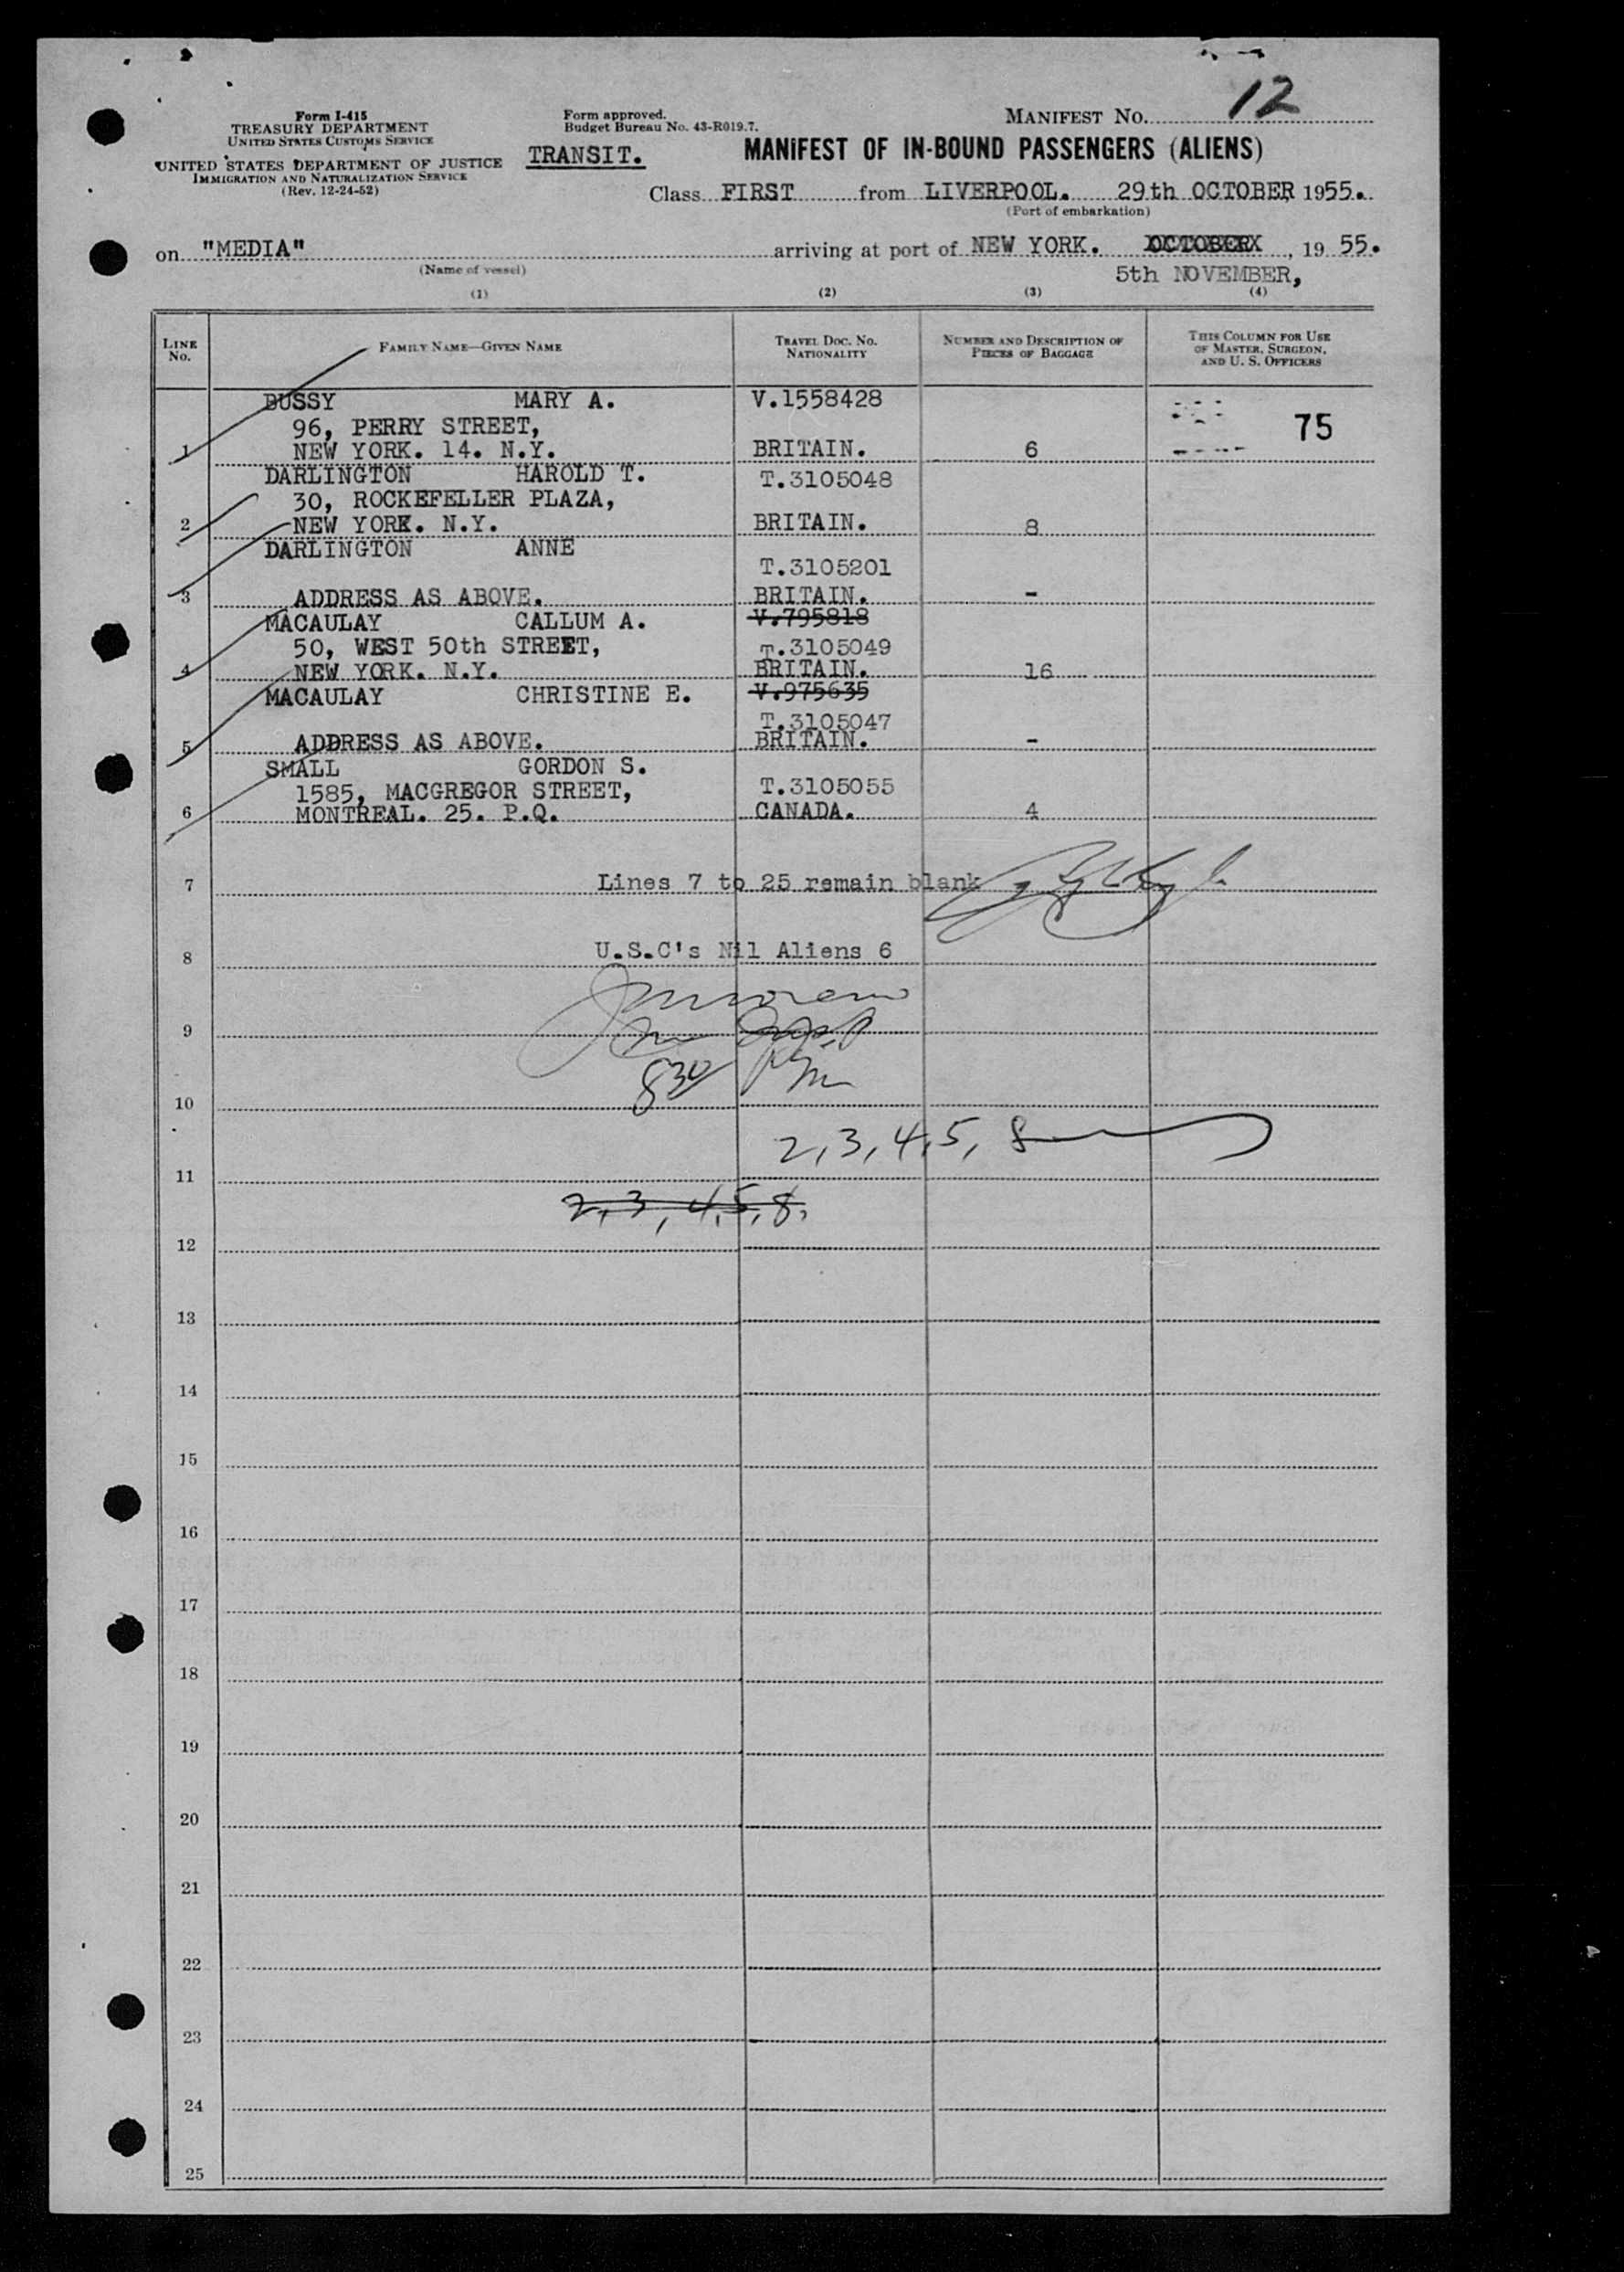 MANIFEST No. 12
Form I-415
TREASURY DEPARTMENT
UNITED STATES CUSTOMS SERVICE
UNITED STATES DEPARTMENT OF JUSTICE
IMMIGRATION AND NATURALIZATION SERVICE
(Rev. 12-24-52)
Form approved.
Budget Bureau No. 43-R019.7.
TRANSIT.
MANIFEST OF IN-BOUND PASSENGERS (ALIENS)
Class FIRST from LIVERPOOL. 29th OCTOBER 1955.
(Port of embarkation)
on "MEDIA" arriving at port of NEW YORK. OCTOBER , 19 55.
(Name of vessel) 5th NOVEMBER,
(1) (2) (3) (4)
LINE No. FAMILY NAME—GIVEN NAME TRAVEL DOC. No. NATIONALITY NUMBER AND DESCRIPTION OF PIECES OF BAGGAGE THIS COLUMN FOR USE OF MASTER, SURGEON, AND U. S. OFFICERS
BUSSY MARY A. V.1558428
96, PERRY STREET, 75
1 NEW YORK. 14. N.Y. BRITAIN. 6
DARLINGTON HAROLD T. T.3105048
30, ROCKEFELLER PLAZA,
2 NEW YORK. N.Y. BRITAIN. 8
DARLINGTON ANNE
T.3105201
3 ADDRESS AS ABOVE. BRITAIN. -
MACAULAY CALLUM A. V.795818
50, WEST 50th STREET, T.3105049
4 NEW YORK. N.Y. BRITAIN. 16
MACAULAY CHRISTINE E. V.975635
T.3105047
5 ADDRESS AS ABOVE. BRITAIN. -
SMALL GORDON S.
1585, MACGREGOR STREET, T.3105055
6 MONTREAL. 25. P.Q. CANADA. 4
7 Lines 7 to 25 remain blank
8 U.S.C's Nil Aliens 6
9
830
10
2, 3, 4, 5, 8
11
2, 3, 4, 5, 8,
12
13
14
15
16
17
18
19
20
21
22
23
24
25